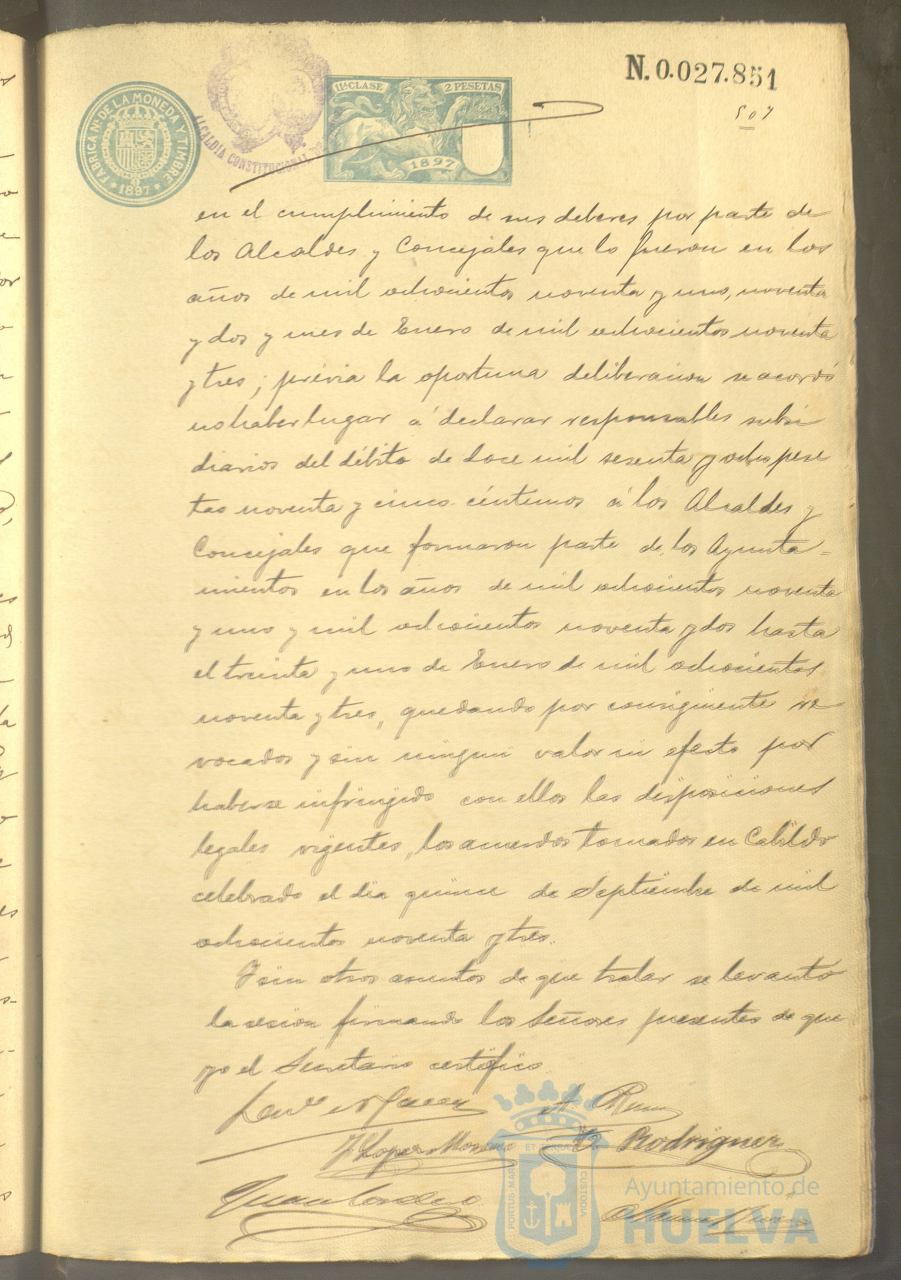 N. 0.027.851
507
FABRICA Nl. DE LA MONEDA Y TIMBRE
1897
ALCALDIA CONSTITUCIONAL
11ª CLASE 2 PESETAS
1897
en el cumplimiento de sus deberes por parte de
los Alcaldes y Concejales que lo fueron en los
años de mil ochocientos noventa y uno, noventa
y dos y mes de Enero de mil ochocientos noventa
y tres; prévia la oportuna deliberacion se acordó
no haber lugar á declarar responsables subsi
diarios del débito de doce mil sesenta y ocho pese
tas noventa y cinco céntimos á los Alcaldes y
Concejales que formaron parte de los Ayunta=
mientos en los años de mil ochocientos noventa
y uno y mil ochocientos noventa y dos hasta
el treinta y uno de Enero de mil ochocientos
noventa y tres, quedando por consiguiente re
vocados y sin ningun valor ni efecto por
haberse infringido con ellos las disposiciones
legales vigentes, los acuerdos tomados en Cabildo
celebrado el dia quince de Septiembre de mil
ochocientos noventa y tres.
Y sin otros asuntos de que tratar se levantó
la sesion firmando los Señores presentes de que
yo el Secretario certifico.
J. Lopez Moreno Rodriguez
Juan
PORTUS MARIS ET TERRAE CUSTODIA
Ayuntamiento de
HUELVA